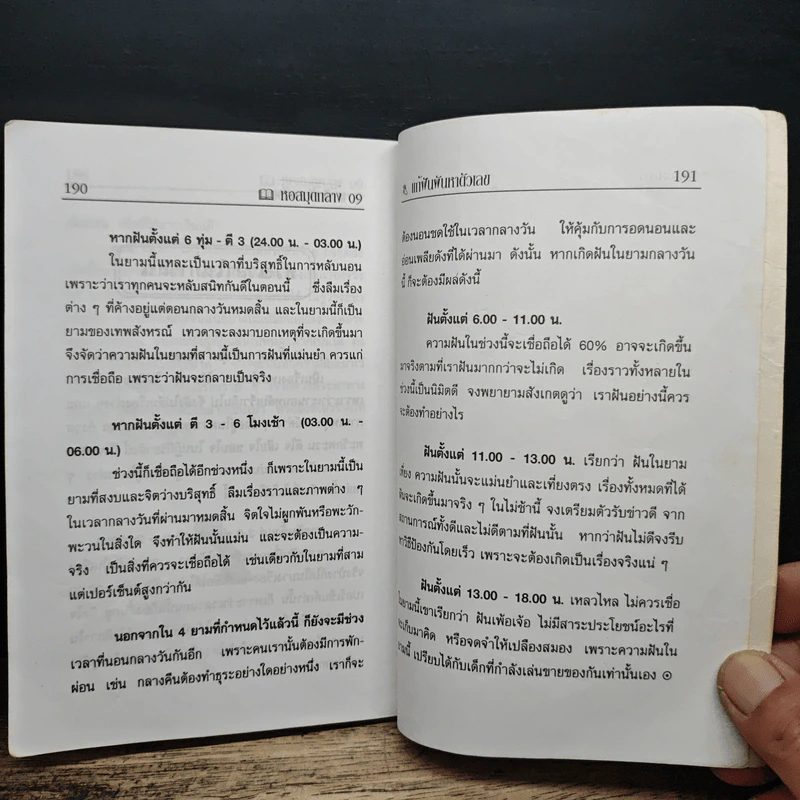 190
หอสมุดกลาง 09
หากฝันตั้งแต่ 6 ทุ่ม - ตี 3 (24.00 น. - 03.00 น.)
ในยามนี้แหละเป็นเวลาที่บริสุทธิ์ในการหลับนอน
เพราะว่าเราทุกคนจะหลับสนิทกันดีในตอนนี้ ซึ่งลืมเรื่อง
ต่าง ๆ ที่ค้างอยู่แต่ตอนกลางวันหมดสิ้น และในยามนี้ก็เป็น
ยามของเทพสังหรณ์ เทวดาจะลงมาบอกเหตุที่จะเกิดขึ้นมา
จึงจัดว่าความฝันในยามที่สามนี้เป็นการฝันที่แม่นยำ ควรแก่
การเชื่อถือ เพราะว่าฝันจะกลายเป็นจริง
หากฝันตั้งแต่ ตี 3 - 6 โมงเช้า (03.00 น. -
06.00 น.)
ช่วงนี้ก็เชื่อถือได้อีกช่วงหนึ่ง ก็เพราะในยามนี้เป็น
ยามที่สงบและจิตว่างบริสุทธิ์ ลืมเรื่องราวและภาพต่าง ๆ
ในเวลากลางวันที่ผ่านมาหมดสิ้น จิตใจไม่ผูกพันหรือพะวัก-
พะวนในสิ่งใด จึงทำให้ฝันนั้นแม่น และจะต้องเป็นความ-
จริง เป็นสิ่งที่ควรจะเชื่อถือได้ เช่นเดียวกับในยามที่สาม
แต่เปอร์เซ็นต์สูงกว่ากัน
นอกจากใน 4 ยามที่กำหนดไว้แล้วนี้ ก็ยังจะมีช่วง
เวลาที่นอนกลางวันกันอีก เพราะคนเรานั้นต้องมีการพัก-
ผ่อน เช่น กลางคืนต้องทำธุระอย่างใดอย่างหนึ่ง เราก็จะ
แก้ฝันพันหาตัวเลข
191
ต้องนอนชดใช้ในเวลากลางวัน ให้คุ้มกับการอดนอนและ
อ่อนเพลียดังที่ได้ผ่านมา ดังนั้น หากเกิดฝันในยามกลางวัน
นี้ ก็จะต้องมีผลดังนี้
ฝันตั้งแต่ 6.00 - 11.00 น.
ความฝันในช่วงนี้จะเชื่อถือได้ 60% อาจจะเกิดขึ้น
มาจริงตามที่เราฝันมากกว่าจะไม่เกิด เรื่องราวทั้งหลายใน
ช่วงนี้เป็นนิมิตดี จงพยายามสังเกตดูว่า เราฝันอย่างนี้ควร
จะต้องทำอย่างไร
ฝันตั้งแต่ 11.00 - 13.00 น. เรียกว่า ฝันในยาม
เที่ยง ความฝันนั้นจะแม่นยำและเที่ยงตรง เรื่องทั้งหมดที่ได้
ฝันจะเกิดขึ้นมาจริง ๆ ในไม่ช้านี้ จงเตรียมตัวรับข่าวดี จาก
สถานการณ์ทั้งดีและไม่ดีตามที่ฝันนั้น หากว่าฝันไม่ดีจงรีบ
หาวิธีป้องกันโดยเร็ว เพราะจะต้องเกิดเป็นเรื่องจริงแน่ ๆ
ฝันตั้งแต่ 13.00 - 18.00 น. เหลวไหล ไม่ควรเชื่อ
ในยามนี้เขาเรียกว่า ฝันเพ้อเจ้อ ไม่มีสาระประโยชน์อะไรที่
จะเก็บมาคิด หรือจดจำให้เปลืองสมอง เพราะความฝันใน
ยามนี้ เปรียบได้กับเด็กที่กำลังเล่นขายของกันเท่านั้นเอง